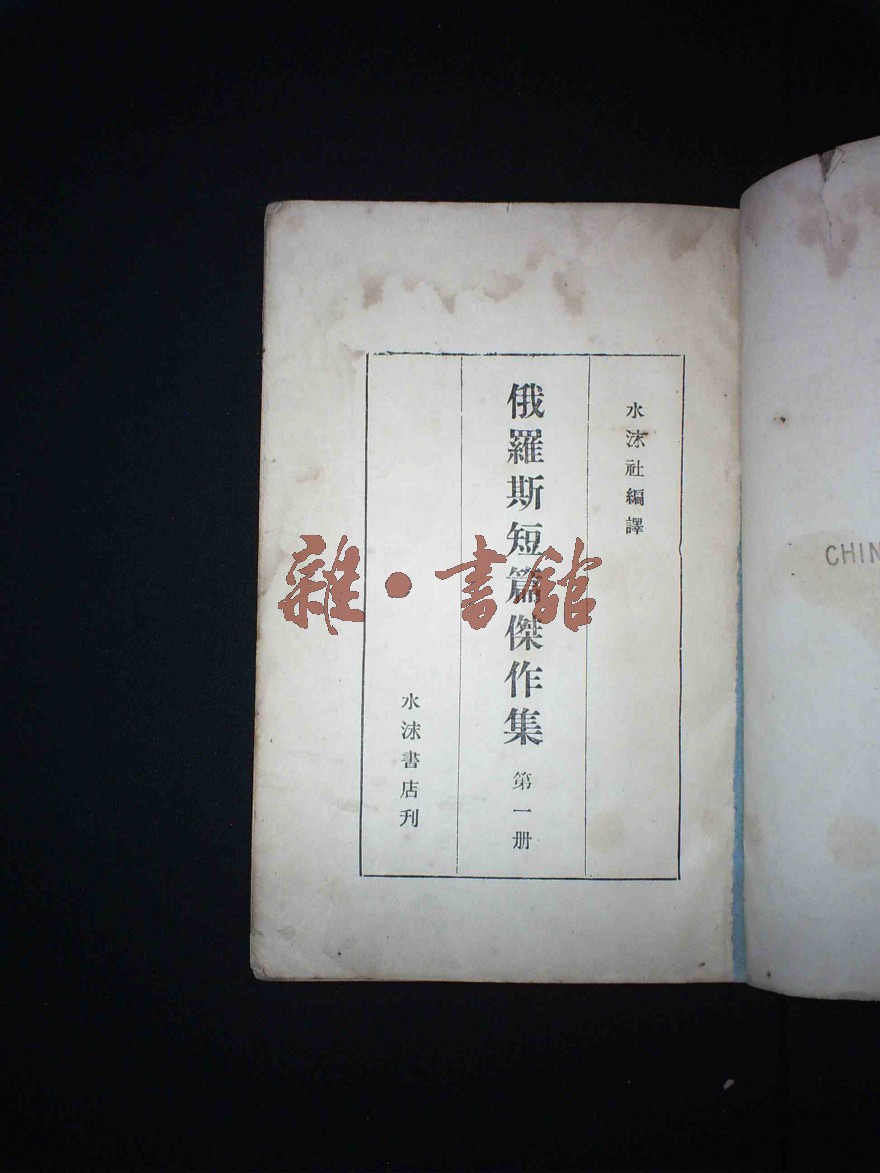 水沫社編譯
俄羅斯短篇傑作集 第一册
水沫書店刊
雜·書館
CHIN